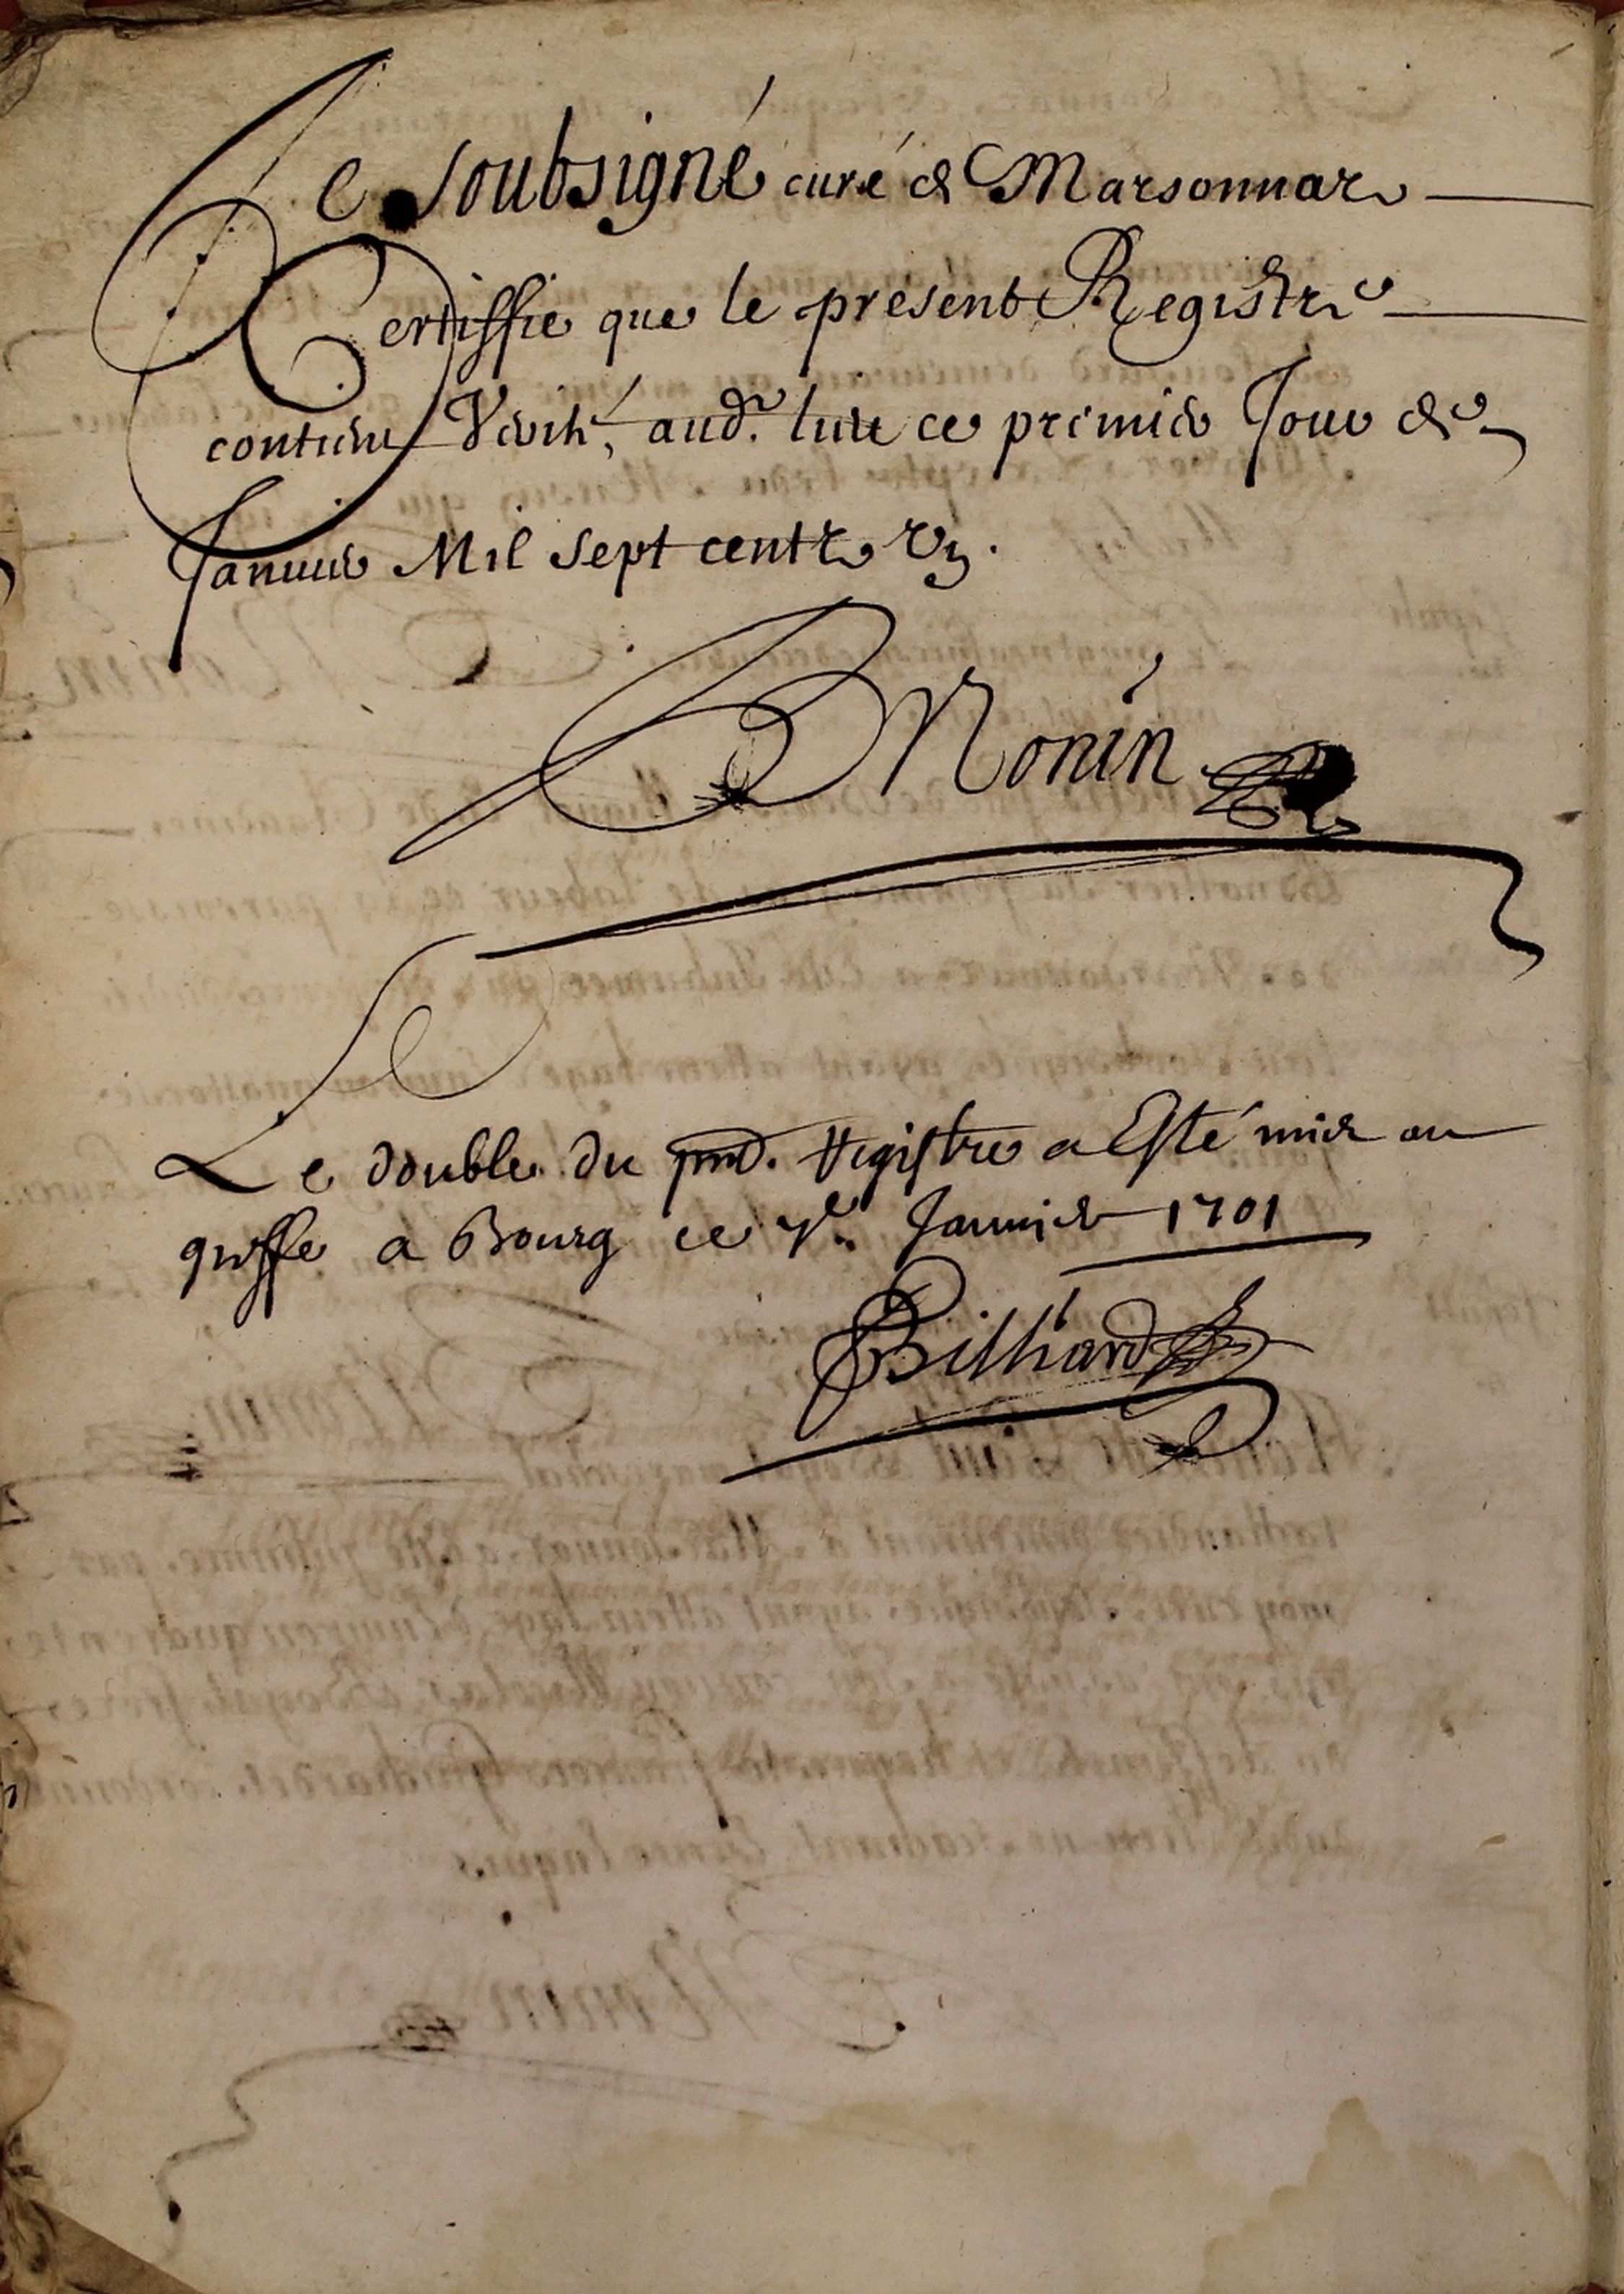 Je soubsigné curé de Marsonnas
Certiffie que le present Registre
contient Verité, aud. lieu ce premier Jour de
Januier Mil sept centz et un.
Nonin
Le double du pnt. Registre a Esté mis au
greffe a Bourg ce 7e. Januier 1701
Billiard